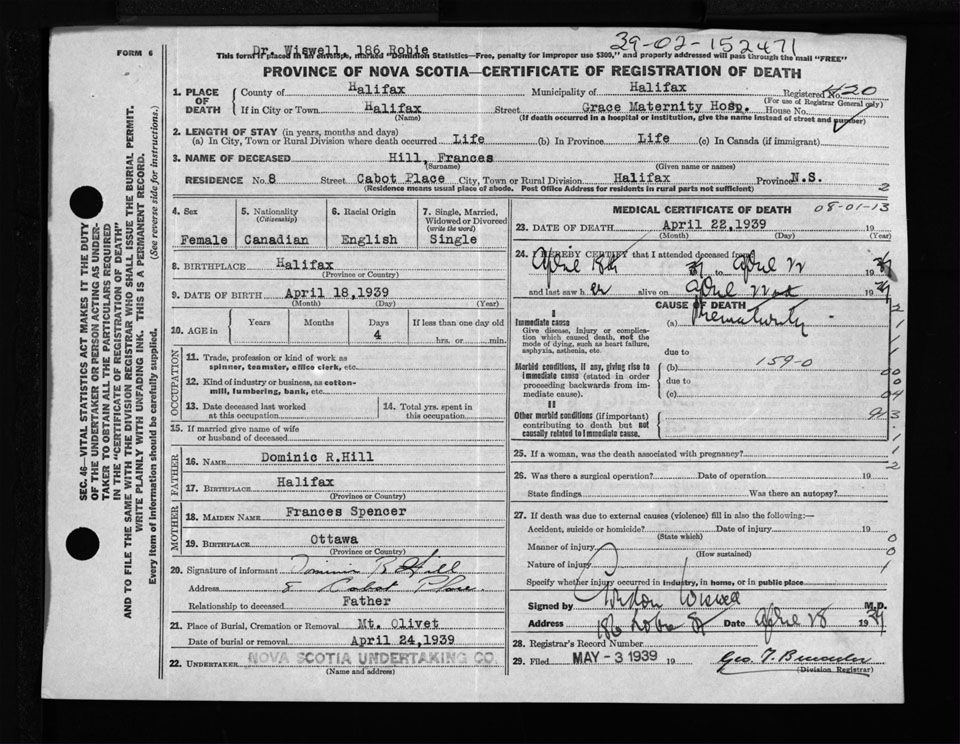 FORM 6
Dr. Wiswell, 186 Robie
39-02-152471
This form if placed in an envelope, marked "Dominion Statistics—Free, penalty for improper use $300," and properly addressed will pass through the mail "FREE"
PROVINCE OF NOVA SCOTIA—CERTIFICATE OF REGISTRATION OF DEATH
1. PLACE OF DEATH
County of Halifax Municipality of Halifax Registered No. 420
(For use of Registrar General only)
If in City or Town Halifax Street Grace Maternity Hosp. House No.
(Name) (If death occurred in a hospital or institution, give the name instead of street and number)
2. LENGTH OF STAY (in years, months and days)
(a) In City, Town or Rural Division where death occurred Life (b) In Province Life (c) In Canada (if immigrant)
3. NAME OF DECEASED Hill, Frances
(Surname) (Given name or names)
RESIDENCE No. 8 Street Cabot Place City, Town or Rural Division Halifax Province N.S.
(Residence means usual place of abode. Post Office Address for residents in rural parts not sufficient)
2
4. Sex 5. Nationality (Citizenship) 6. Racial Origin 7. Single, Married, Widowed or Divorced (write the word)
Female Canadian English Single
8. BIRTHPLACE Halifax
(Province or Country)
9. DATE OF BIRTH April 18,1939
(Month) (Day) (Year)
10. AGE in Years Months Days If less than one day old
4 hrs. or min.
OCCUPATION
11. Trade, profession or kind of work as spinner, teamster, office clerk, etc.
12. Kind of industry or business, as cotton-mill, lumbering, bank, etc.
13. Date deceased last worked at this occupation
14. Total yrs. spent in this occupation
15. If married give name of wife or husband of deceased
FATHER
16. NAME Dominic R.Hill
17. BIRTHPLACE Halifax
(Province or Country)
MOTHER
18. MAIDEN NAME Frances Spencer
19. BIRTHPLACE Ottawa
(Province or Country)
20. Signature of informant Dominic R Hill
Address 8 Cabot Place.
Relationship to deceased Father
21. Place of Burial, Cremation or Removal Mt. Olivet
Date of burial or removal April 24,1939
22. UNDERTAKER NOVA SCOTIA UNDERTAKING CO.
(Name and address)
MEDICAL CERTIFICATE OF DEATH
08-01-13
23. DATE OF DEATH April 22,1939 19
(Month) (Day) (Year)
24. I HEREBY CERTIFY that I attended deceased from
April 18th 39 to April 22 1939
and last saw her alive on April 22nd 1939
CAUSE OF DEATH
I
Immediate cause (a) Prematurity
Give disease, injury or complication which caused death, not the mode of dying, such as heart failure, asphyxia, asthenia, etc.
due to
Morbid conditions, if any, giving rise to immediate cause (stated in order proceeding backwards from immediate).
(b) 159-0
due to
(c)
II
Other morbid conditions (if important) contributing to death but not causally related to immediate cause.
25. If a woman, was the death associated with pregnancy?
26. Was there a surgical operation? Date of operation 19
State findings Was there an autopsy?
27. If death was due to external causes (violence) fill in also the following:—
Accident, suicide or homicide? Date of injury 19
(State which)
Manner of injury
(How sustained)
Nature of injury
Specify whether injury occurred in industry, in home, or in public place
Signed by Wiswell M.D.
Address 186 Robie St Date April 28 1939
28. Registrar's Record Number
29. Filed MAY - 3 1939 19
(Division Registrar)
SEC. 46—VITAL STATISTICS ACT MAKES IT THE DUTY
OF THE UNDERTAKER OR PERSON ACTING AS UNDERTAKER TO OBTAIN ALL THE PARTICULARS REQUIRED
IN THE "CERTIFICATE OF REGISTRATION OF DEATH"
AND TO FILE THE SAME WITH THE DIVISION REGISTRAR WHO SHALL ISSUE THE BURIAL PERMIT.
WRITE PLAINLY WITH UNFADING INK. THIS IS A PERMANENT RECORD.
Every item of information should be carefully supplied. (See reverse side for instructions.)